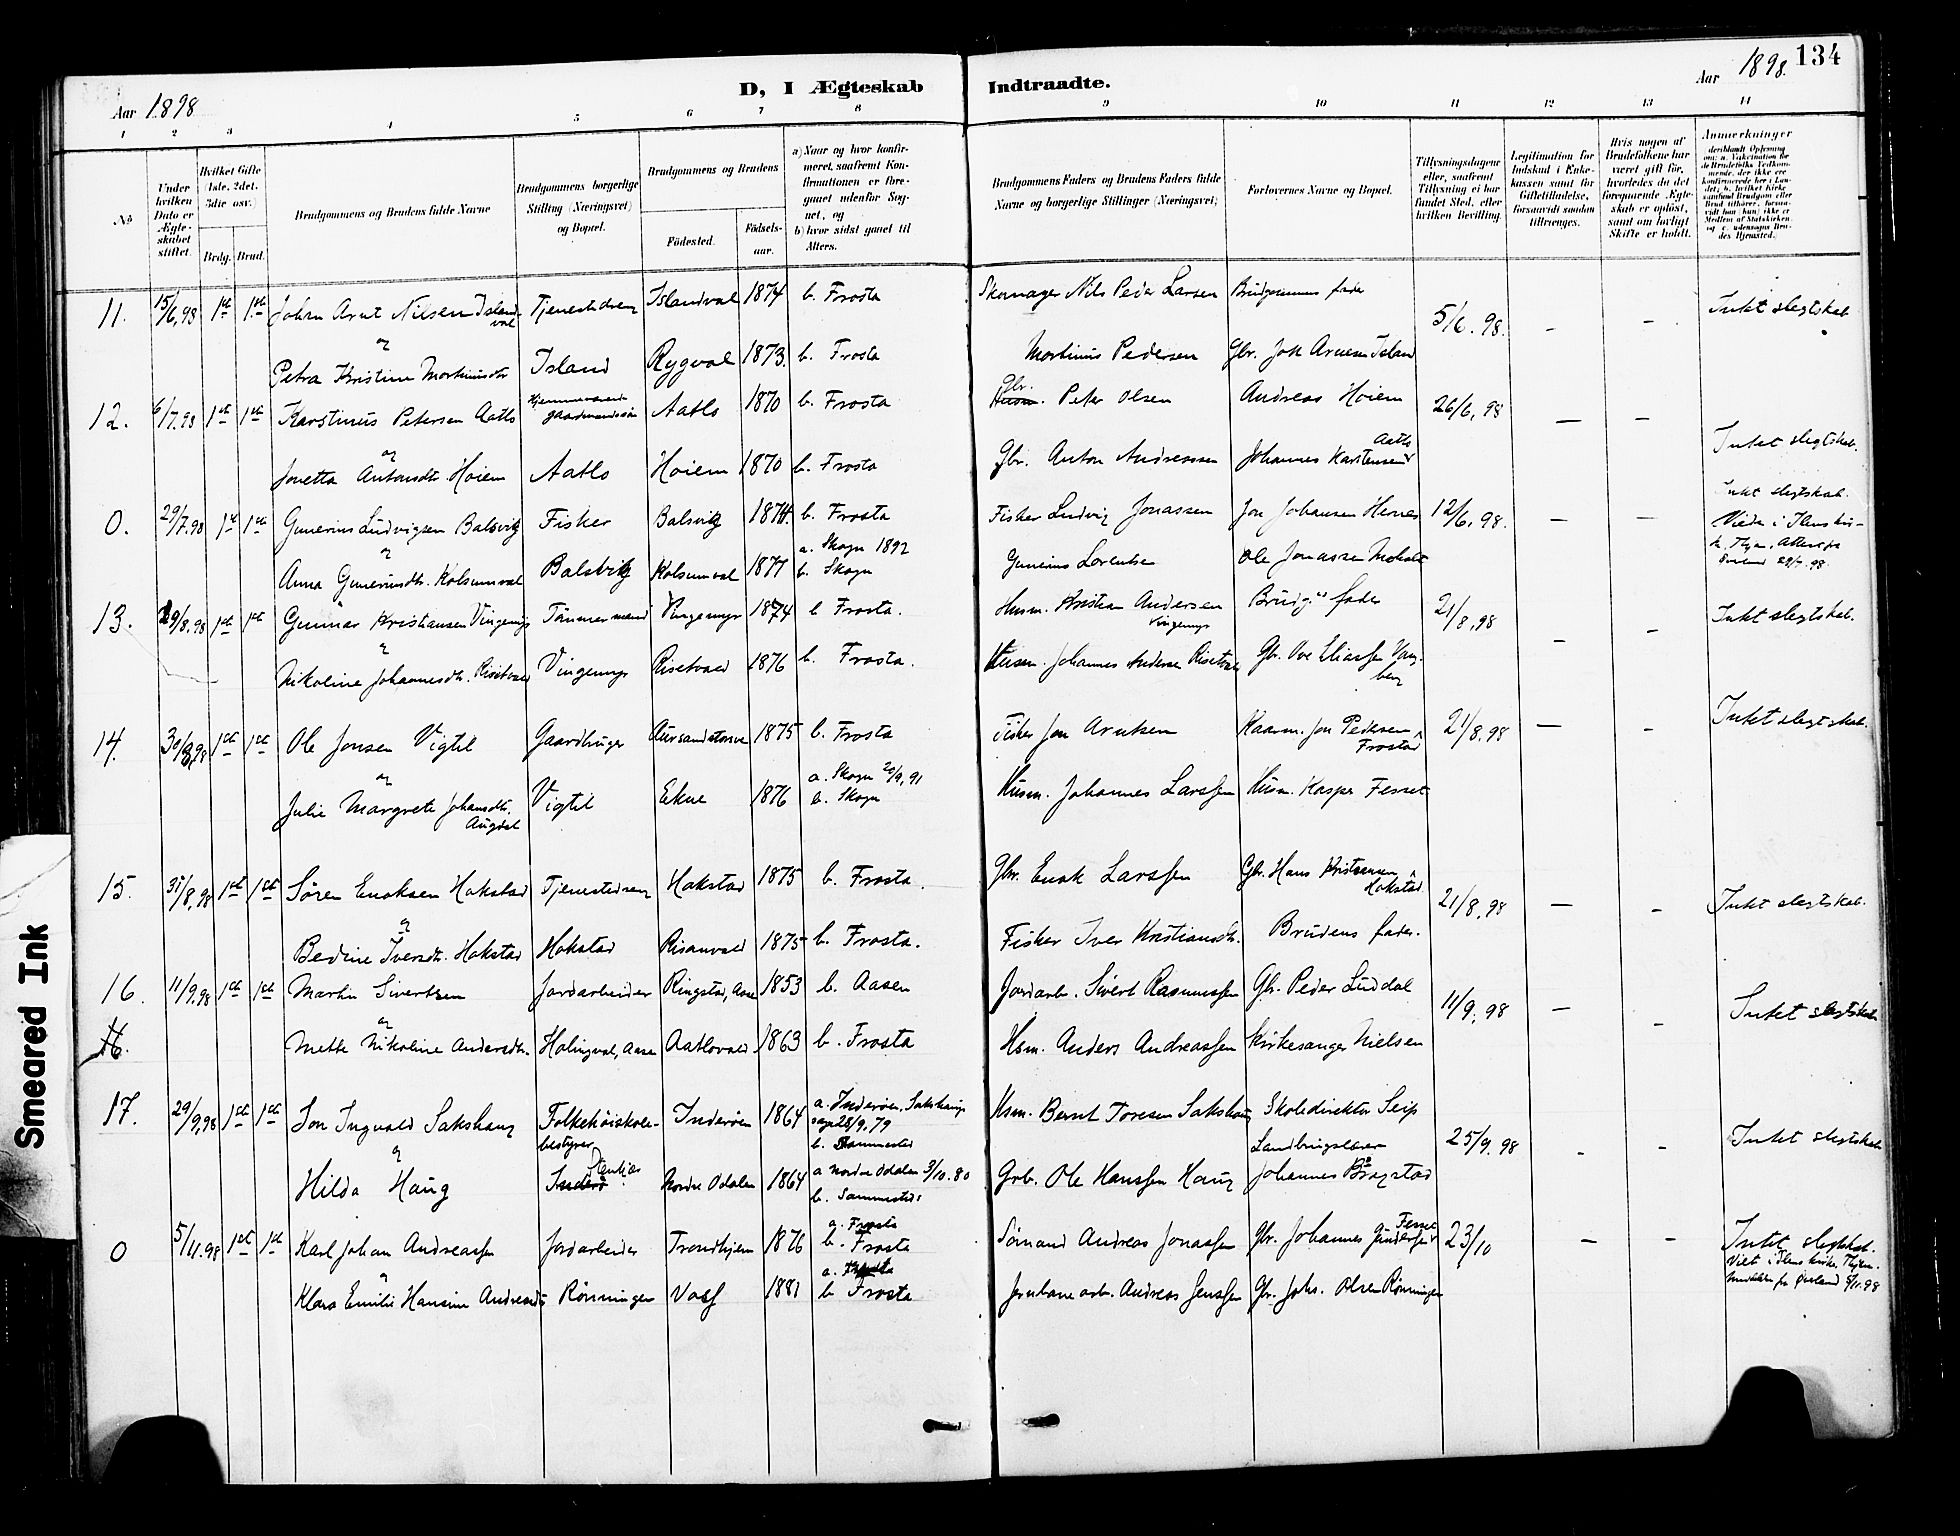 134
Aar 1898
D, I Ægteskab Indtraadte.
Aar 1898.
1 2 3 4 5 6 7 8 9 10 11 12 13 14
No
Under hvilken Dato er Ægteskabet stiftet.
Hvilket Gifte (1ste, 2det, 3die osv.)
Brdg. Brud.
Brudgommens og Brudens fulde Navne
Brudgommens borgerlige Stilling (Næringsvei) og Bopæl.
Brudgommens og Brudens
Fødested. Fødselsaar.
a) Naar og hvor konfirmeret, saafremt Konfirmationen er foregaaet udenfor Sognet, og
b) hvor sidst gaaet til Alters.
Brudgommens Faders og Brudens Faders fulde Navne og borgerlige Stillinger (Næringsvei)
Forlovernes Navne og Bopæl.
Tillysningsdagene eller, saafremt Tillysning ei har fundet Sted, efter hvilken Bevilling.
Legitimation for Indskud i Enkekassen samt for Giftetilladelse, forsaavidt saadan tiltrænges.
Hvis nogen af Brudefolkene har været gift før, hvorledes da det foregaaende Ægteskab er opløst, samt om lovligt Skifte er holdt.
Anmerkninger
11. 15/6.98 1st 1st Johan Arnt Nilsen Islandval Tjenestedreng Islandval 1874 b. Frosta Skomager Nils Peder Larsen Brudgommens fader 5/6. 98. – – Intet slegtskab
og
Petra Kristine Martinusdtr Island Rygval 1873. b. Frosta Martinus Pedersen Gbr. Joh Arnesen Island
12. 6/7.98 1st 1st Karstinus Petersen Aatlo gaardmandssøn Aatlo 1870 b. Frosta Gbr. Peter Olsen Andreas Hoiem 26/6.98 – – Intet slegtskab.
og
Jonetta Antonsdtr. Hoiem Aatlo Hoiem 1870 b. Frosta Gbr. Anton Andreassen Johannes Karstensen Aatlo
0. 29/7.98 1st 1st Gunerius Ludvigsen Balsvik Fisker Balsvik 1871. b. Frosta Fisker Ludvig Jonassen Jon Johansen Hernes 12/6.98. – – Intet slegtskab.
og
Anna Guneriusdtr. Kolsumval Balsvik Kolsumval 1877 a. Skogn 1892 b. Skogn Gunerius Lorentsen Ole Jonassen Moholt
13. 29/8.98 1st 1st Gunnar Kristiansen Vingemyr Tømmermand Vingemyr 1874 b Frosta. Husm. Kristian Andersen Vingemyr Brudg.s fader 21/8.98 – – Intet slegtskab.
og
Nikoline Johannesdtr. Risetvald Vingemyr Risetvald 1876 b. Frosta. Husm. Johannes Andersen Risetvald Gbr. Ove Eliassen Vangberg
14. 30/8.98 1st 1st Ole Jonsen Vigtil Gaardbruger 1875 b. Frosta Fisker Jon Arntsen Kaarm. Jon Pedersen Frostad 21/8.98 – – Intet slegtskab.
og
Julie Margrete Johansdtr. Augdal Vigtil Ekne 1876 a. Skogn 20/9.91 b. Skogn Husm. Johannes Larssen Husm. Kasper Fesset
15. 31/8.98 1st 1st Søren Enoksen Hokstad Tjenestedreng Hokstad 1875 b. Frosta. Gbr. Enok Larssen Gbr. Hans Kristensen Hokstad 21/8.98 – – Intet slegtskab.
og
Bedine Iversdtr. Hokstad Hokstad Risanvald 1875 b. Frosta. Fisker Iver Kristiansdtr. Brudens fader.
16. 11/9.98 1st 1st Martin Sivertsen Jordarbeider Ringstad, Aasen 1853 b. Aasen Jordarb. Sivert Rasmussen Gbr. Peder Luddal 11/9.98 – – Intet slegtskab
og
16. Mette Nikoline Andersdtr. Holingval, Aasen Aatlovald 1863 b. Frosta Hsm. Anders Andreassen Kirkesanger Nielsen
17. 29/9.98 1st 1st Jon Ingvald Sakshaug Folkehøiskolebestyrer Inderøen 1864 a. Inderøen, Sakshaug 28/9.79 b. Sammested Hsm. Bernt Toresen Sakshaug Skoledirektør Seip 25/9.98 - - Intet slegtskab
og
Hilda Haug Inderø Nordre Odalen 1864 a Nordre Odalen 3/10.80 b. Sammesteds Grb. Ole Hanssen Haug Landbrugslærer Johannes Bragstad
0 5/11.98 1st 1st Karl Johan Andreassen Jordarbeider Trondhjem 1876 a. Frosta b. Frosta Sømand Andreas Jonassen Gbr. Johannes Gundersen Fesset 23/10 – – Intet slegtskab.
og
Klara Emilie Hansine Andreasdtr Rönningen Voss 1881 b. Frosta Jernbanearb. Andreas Jenssen Gbr. Johs. Olsen Rönningen
Viet i Ilens kirke, Thjem.
Smeared Ink